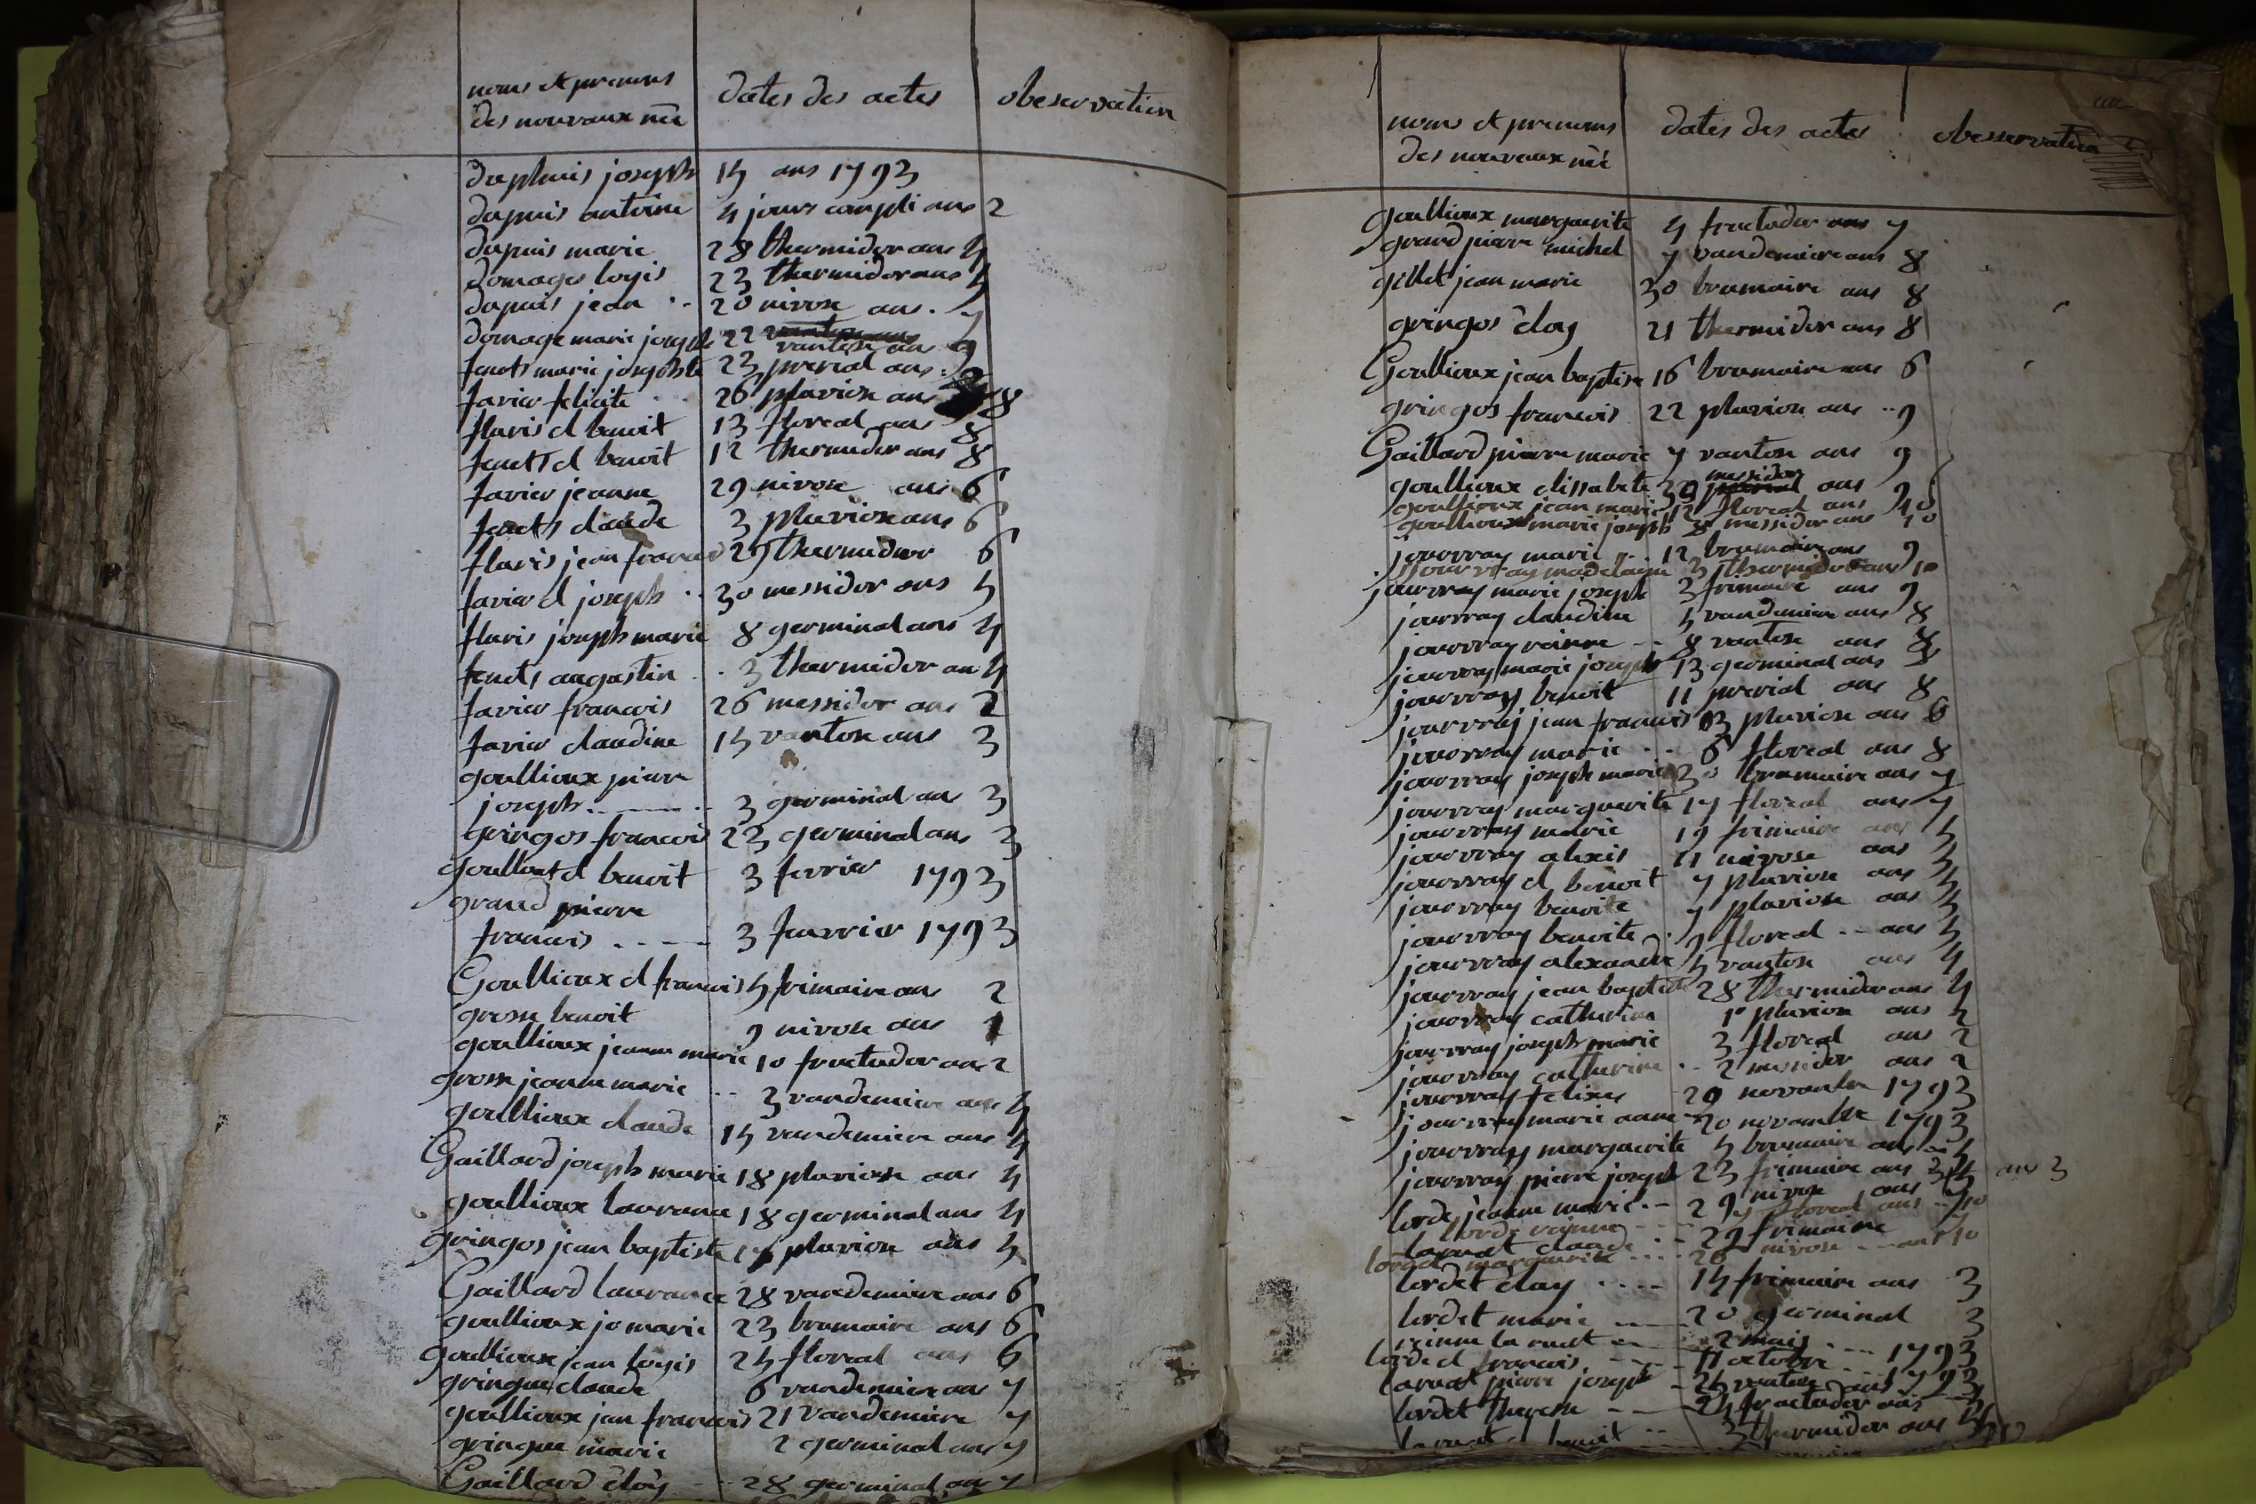 noms et prenoms
des nouvaux née
dates des actes
obeservation
dupluis joseph 14 ans 1793
dupuis antoine 4 jours compli ans 2
dupuis marie 28 thermidor ans 4
domages loyis 23 thermidor ans 4
dupuis jean 20 nivose ans 7
domage marie joseph 22 vantose ans 9
fenets marie josephte 23 prerial ans
favier felicite 26 pluviose ans 8
flaris d benoit 13 floreal ans 8
fenets d benoit 12 thermidor ans 8
favier jeanne 29 nivose ans 6
fenets claude 3 pluviose ans 6
flaris jean francois 29 thermidor 6
favier d joseph 30 messidor ans 4
flaris joseph marie 8 germinal ans 4
fenets augustin 3 thermidor an 4
favier francois 26 messidor ans 2
favier claudine 14 vantose ans 3
goullioux pierre
joseph 3 germinal ans 3
gringos francois 23 germinal ans 3
goullioud benoit 3 fevrier 1793
grand pierre
francois 3 feuvrier 1793
Goullioux d francois 4 frimaire ans 2
grosse benoit 9 nivose ans
goullioux jeanne marie 10 fructador an 2
grosse jeanne marie 3 vandemiere ans 4
goullioux claude 14 vandemiere ans 4
Gaillard joseph marie 18 pluviose ans 4
goullioux laurance 18 germinal ans 4
gringos jean baptiste 17 pluviose ans 4
Gaillard laurance 28 vandemiere ans 6
goullioux jo marie 23 brumaire ans 6
goullioux jean loyis 24 floreal ans 6
gringue claude 6 vandemiere ans 7
goullioux jean francois 21 vandemiere 7
gringue marie 2 germinal ans 7
Gaillard éloy 28 germinal an 7
noms et prenoms
des nouvaux née
dates des actes
obesservation
goullioux marguerite 4 fructador ans 7
grand pierre michel 7 vandemiere ans 8
gillet jean marie 30 brumaire ans 8
gringos éloy 21 thermidor ans 8
Goullioux jean baptiste 16 brumaire ans 6
gringos francois 22 pluviose ans 9
Gaillard pierre marie 7 vantose ans 9
goullioux elissabete 30 messidor ans 9
goullioux jean marie 12 floreal ans 10
goullioux marie joseph messidor ans 10
jouvray marie 12 brumaire ans 9
jouvray madelaine 3 thermidor ans 10
jouvray marie joseph 3 frimaire ans 9
jouvray claudine 4 vandemiere ans 8
jouvray reinne 8 vantose ans 8
jouvray marie joseph 13 germinal ans 8
jouvray benoit 11 prerial ans 8
jouvray jean francois pluviose ans 6
jouvray marie 6 floreal ans 8
jouvray joseph marie 30 brumaire ans 7
jouvray marguerite 17 floreal ans 7
jouvray marie 19 frimaire ans 4
jouvray alexis 11 nivose ans 4
jouvray d benoit 7 pluviose ans 4
jouvray benoite 7 pluviose ans 4
jouvray benoite 9 floreal ans 4
jouvray alexandre 4 vantose ans 4
jouvray jean baptiste 28 thermidor ans 4
jouvray catherine 1 pluviose ans 2
jouvray joseph marie 3 floreal ans 2
jouvray catherine 2 messidor ans 2
jouvray felixes 20 novambre 1793
jouvray marie anne 20 novambre 1793
jouvray marguerite 4 brumaire ans 4
jouvray pierre joseph 23 frimaire ans 3 ans 3
lorde jeanne marie 29 nivose ans
lorde reinne floreal ans 10
laruat claude 29 frimaire
lordet marguerite 26 nivose ans 10
lordet eloy 14 frimaire ans 3
lordet marie 20 germinal 3
reinne la ruat 2 mais 1793
lorde d francois 11 octobre 1793
laruat pierre joseph 24 vantose ans 3
lordet therese 24 fructador ans
laruat benoit 3 thermidor ans